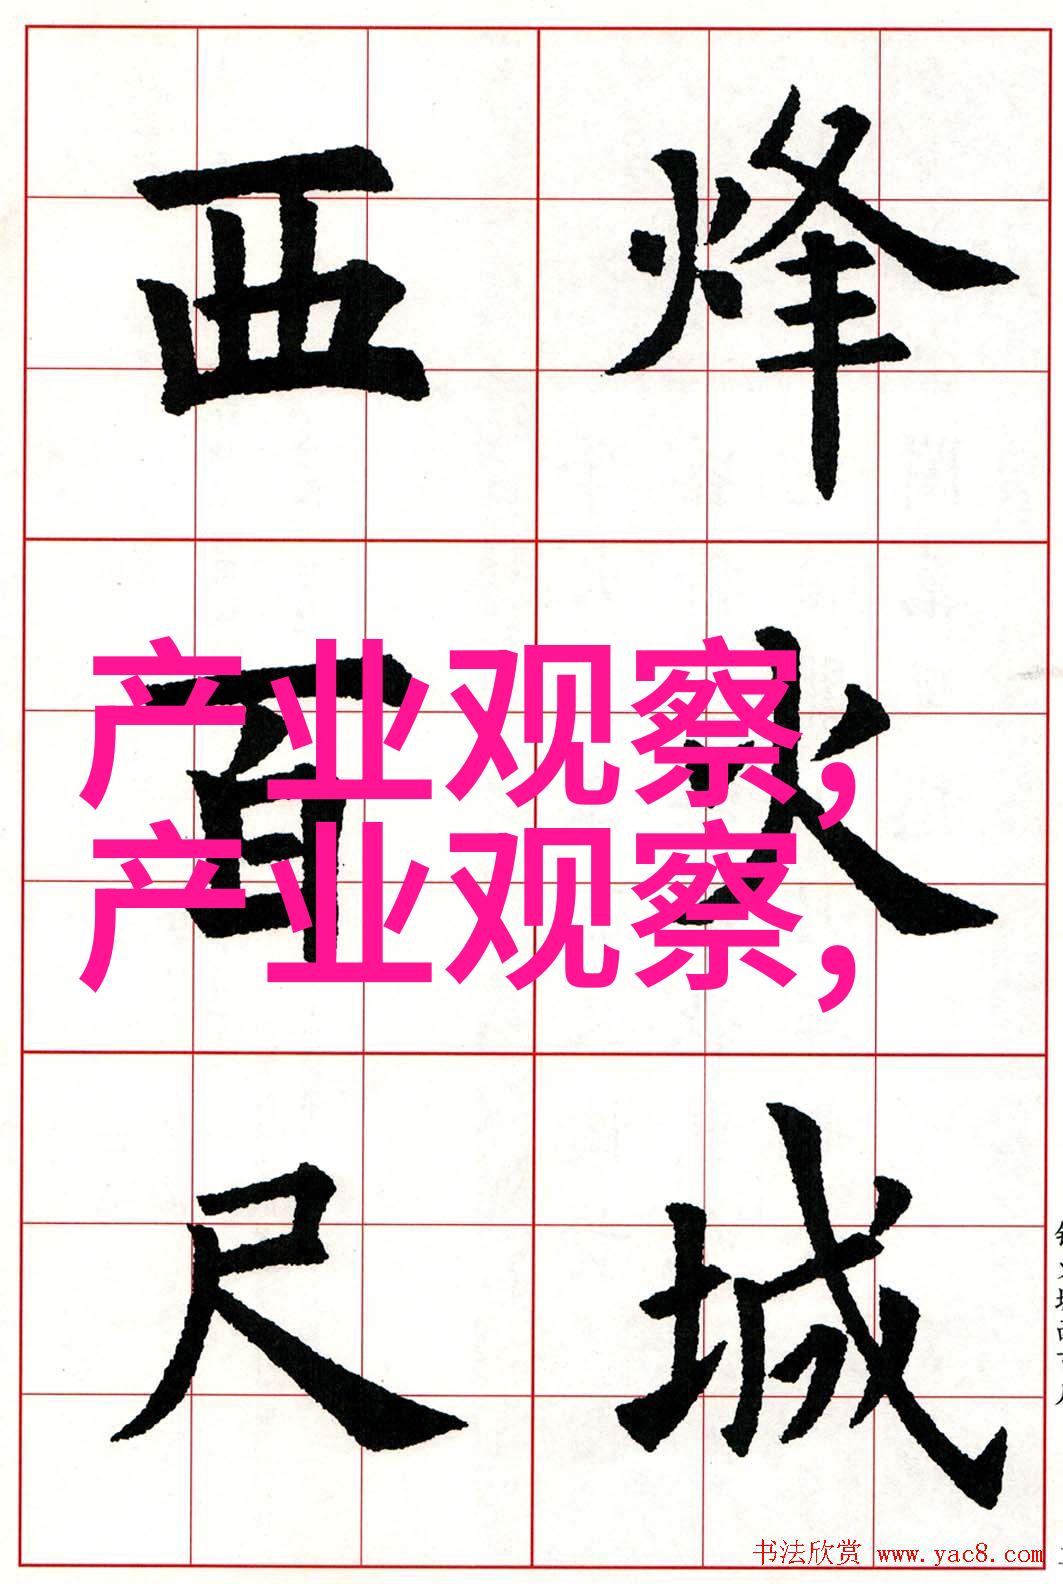 烽火城
西百尺
产业观察,
产业观察,
书法欣赏 www.yac8.com